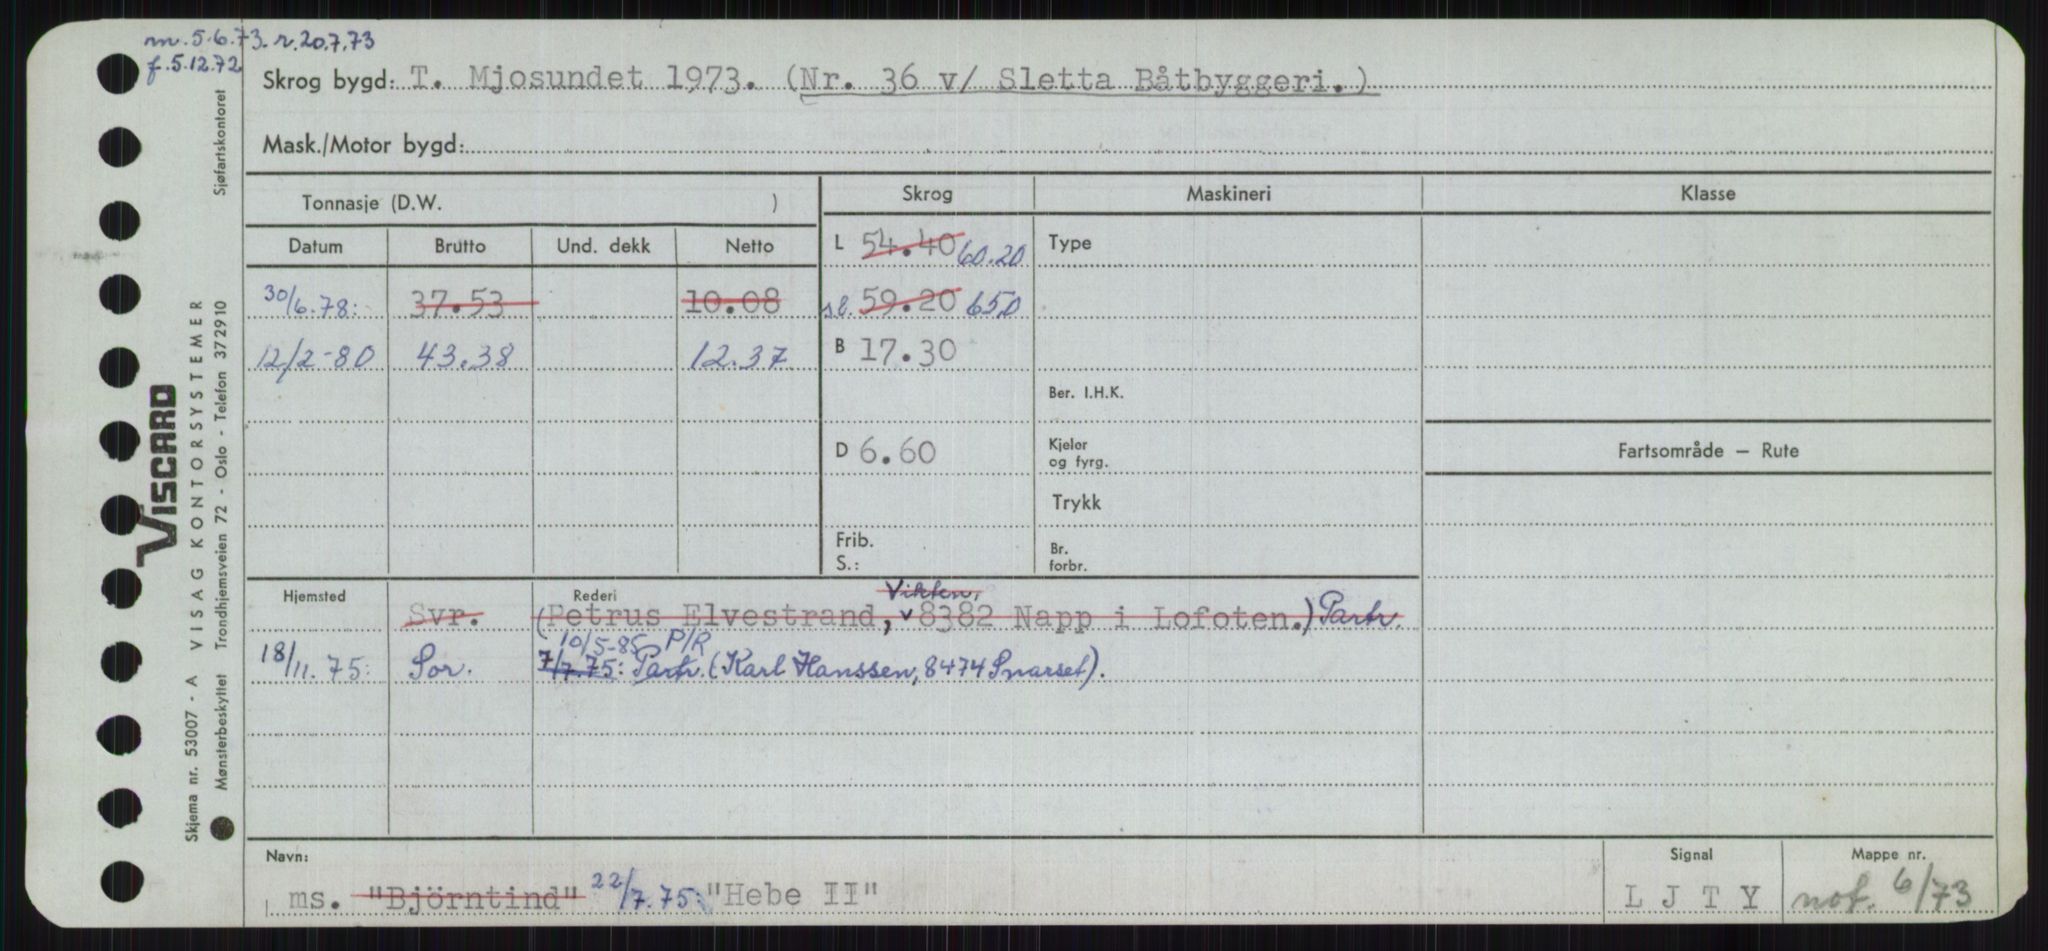 m. 5.6.73. r. 20.7.73
f. 5.12.72
Skrog bygd: T. Mjosundet 1973. (Nr. 36 v/ Sletta Båtbyggeri.)
Mask./Motor bygd:
Tonnasje (D.W. )
Skrog
Maskineri
Klasse
Datum Brutto Und. dekk Netto
L 54.40 60.20
Type
30/6.78: 37.53 10.08
s.l. 59.20 65.0
12/2-80 43.38 12.37
B 17.30
Ber. I.H.K.
D 6.60
Kjeler
og fyrg.
Fartsområde — Rute
Trykk
Frib.
S.:
Br.
forbr.
Hjemsted
Rederi
Vikten,
Svr. (Petrus Elvestrand, v 8382 Napp i Lofoten.) Partr.
10/5-85 P/R
18/11.75: Sor. 7/7.75: Partr. (Karl Hanssen, 8474 Snarset).
Navn:
ms. "Björntind" 22/7.75: "Hebe II"
Signal
L J T Y
Mappe nr.
not. 6/73
VISCARD
Skjema nr. 53007 - A VISAG KONTORSYSTEMER
Mønsterbeskyttet Trondhjemsveien 72 - Oslo - Telefon 372910
Sjøfartskontoret